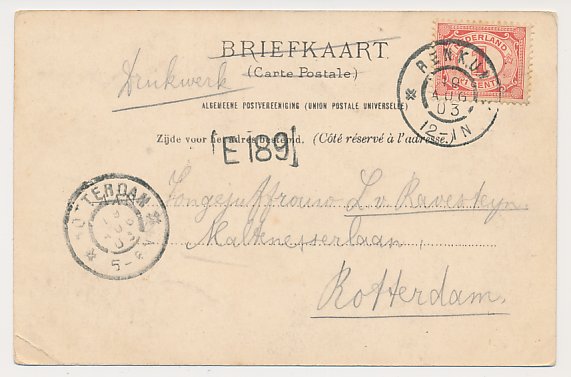 BRIEFKAART.
(Carte Postale)
Drukwerk
ALGEMEENE POSTVEREENIGING (UNION POSTALE UNIVERSELLE)
Zijde voor het adres bestemd. (Côté réservé à l'adresse.
NEDERLAND
1
CENT
RENKUM
19
AUG
03
12-1N
E 189
ROTTERDAM
5-
Jongejuffrouw L. v. Ravesteyn.
Maltenesserlaan,
Rotterdam.